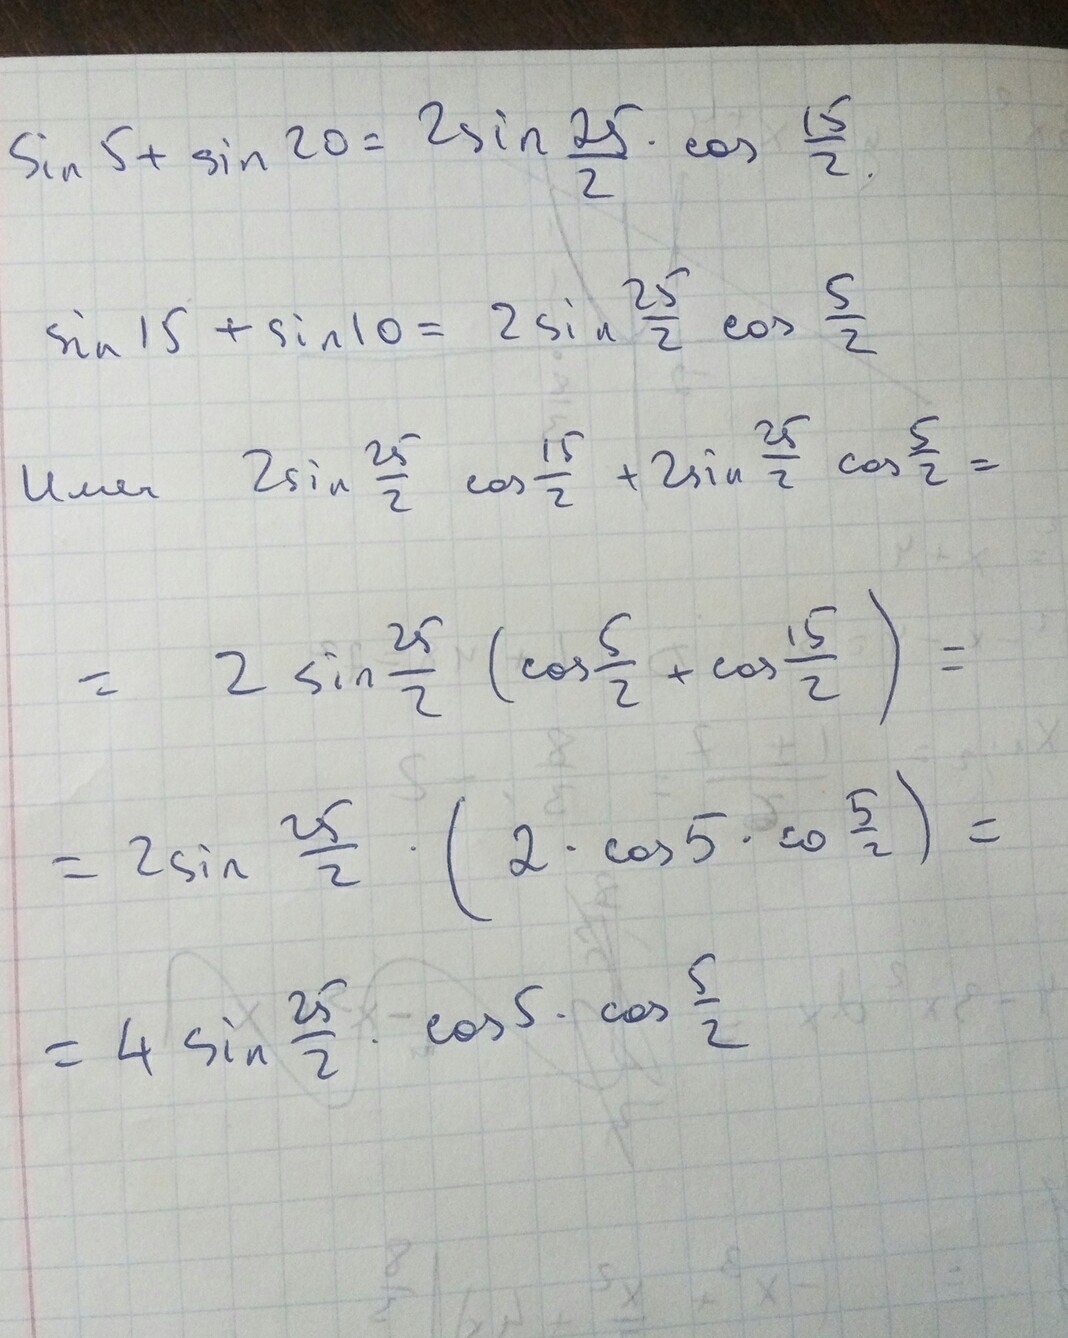 Sin 5 + sin 20 = 2sin 25/2 · cos 15/2.
sin 15 + sin 10 = 2 sin 25/2 cos 5/2
Имеем 2sin 25/2 cos 15/2 + 2sin 25/2 cos 5/2 =
= 2 sin 25/2 (cos 5/2 + cos 15/2) =
= 2sin 25/2 · (2 · cos 5 · co 5/2) =
= 4 sin 25/2 · cos 5 · cos 5/2